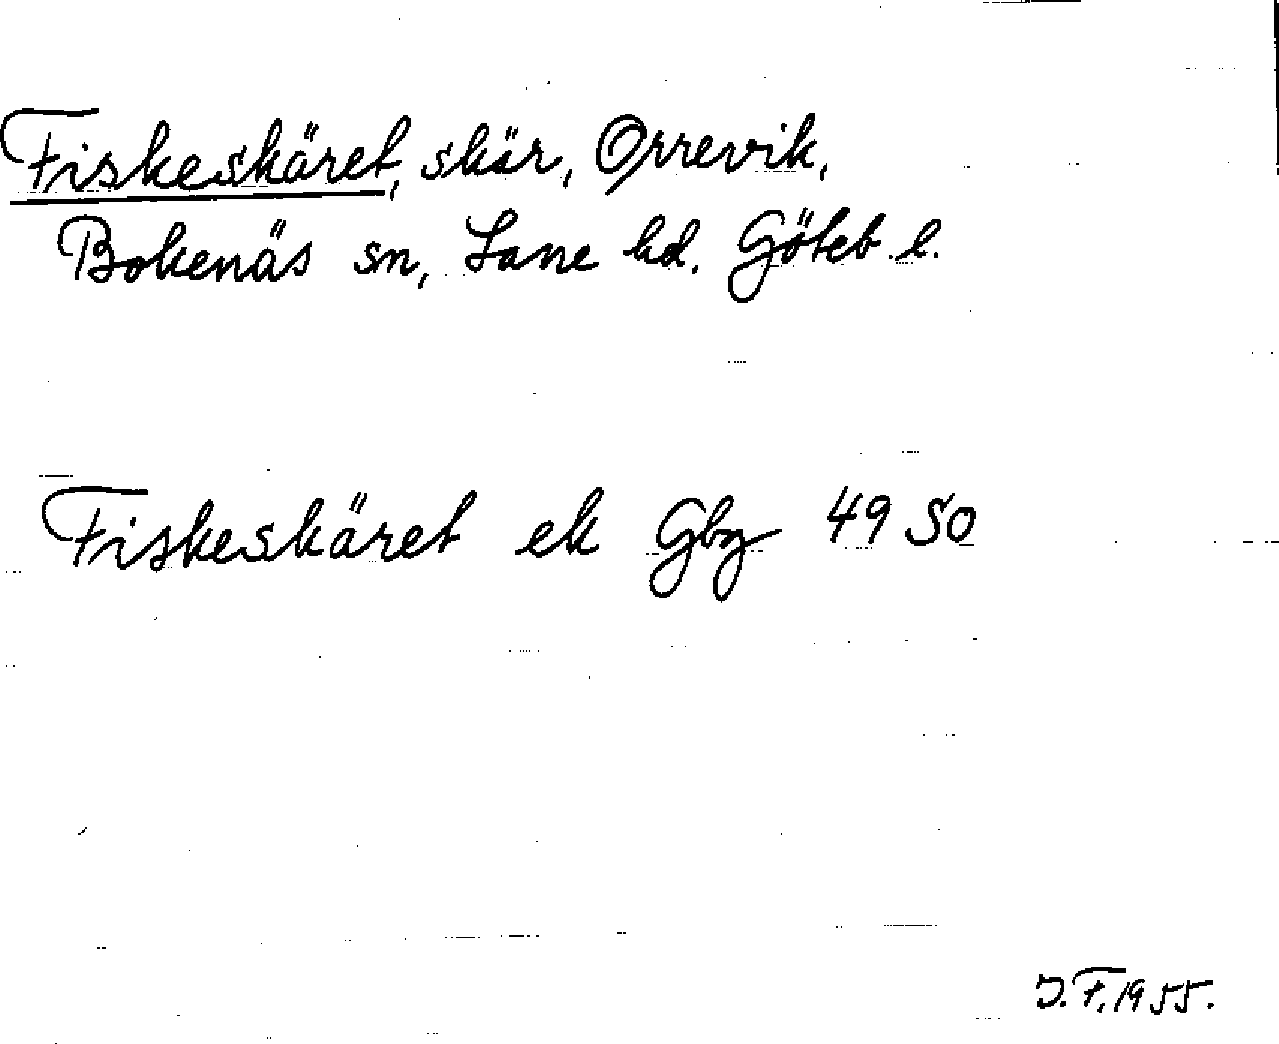 Fiskeskäret, skär, Orrevik,
Bokenäs sn, Lane hd. Göteb. l.
Fiskeskäret ek Gbg 4950
J.F. 1955.